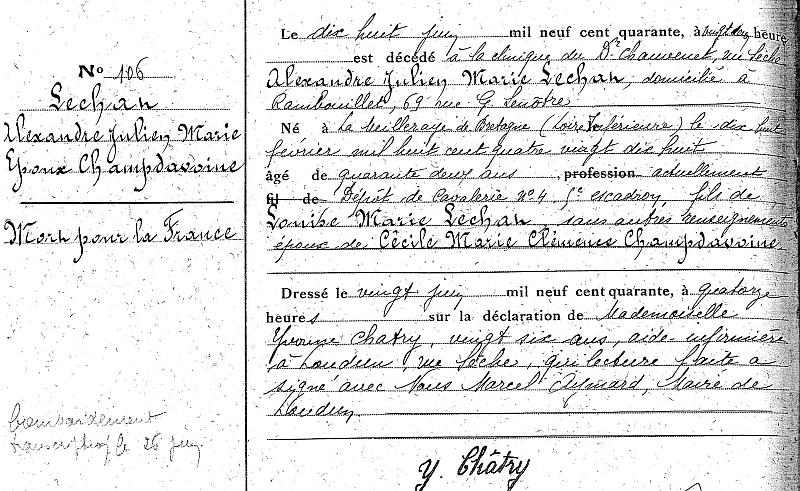 Nº 106
Lechan
Alexandre Julien Marie
Epoux Champdavoine
Mort pour la France
bombardement
transcription le 26 juin
Le dix huit juin mil neuf cent quarante, à vingt deux heure
est décédé à la clinique du Dr Chauvenet, rue Sèche
Alexandre Julien Marie Lechan, domicilié à
Rambouillet, 69 rue G. Lenôtre
Né à La Meilleraye de Bretagne (Loire Inférieure) le dix huit
février mil huit cent quatre vingt dix huit
âgé de quarante deux ans, profession actuellement
fil de Dépôt de Cavalerie Nº 4, 5e escadron, fils de
Louise Marie Lechan, sans autres renseignements
époux de Cécile Marie Clémence Champdavoine
Dressé le vingt juin mil neuf cent quarante, à quatorze
heures sur la déclaration de Mademoiselle
Yvonne Chatry, vingt six ans, aide-infirmière
à Loudun, rue Sèche, qui lecture faite a
signé avec Nous Marcel Aymard, Maire de
Loudun
Y. Châtry